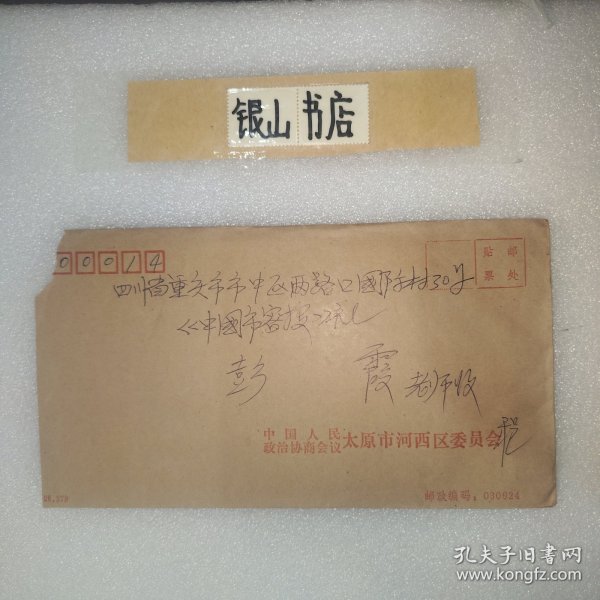 银山书店
00014
贴 邮
票 处
四川省重庆市市中区两路口国际村30号
《中国市容报》
彭 霞 老师收
中国人民
政治协商会议
太原市河西区委员会
邮政编码：030024
孔夫子旧书网
www.kongfz.com